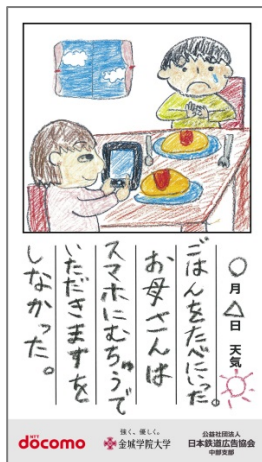 ○月△日 天気
ごはんをたべにいった。
お母さんは
スマホにむちゅうで
いただきますを
しなかった。
NTT
docomo
強く、優しく。
金城学院大学
公益社団法人
日本鉄道広告協会
中部支部